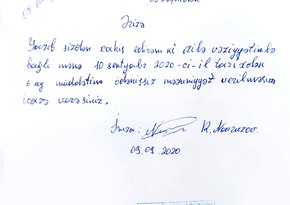 Ərizə
Yazıb sizdən xahiş edirəm ki ailə vəziyyətimlə
bağlı mənə 10 sentyabr 2020-ci il tarixdən
6 ay müddətinə ödənişsiz məzuniyyət verilməsinə
icazə verəsiniz.
İmza: R. Novruzov
09.09.2020